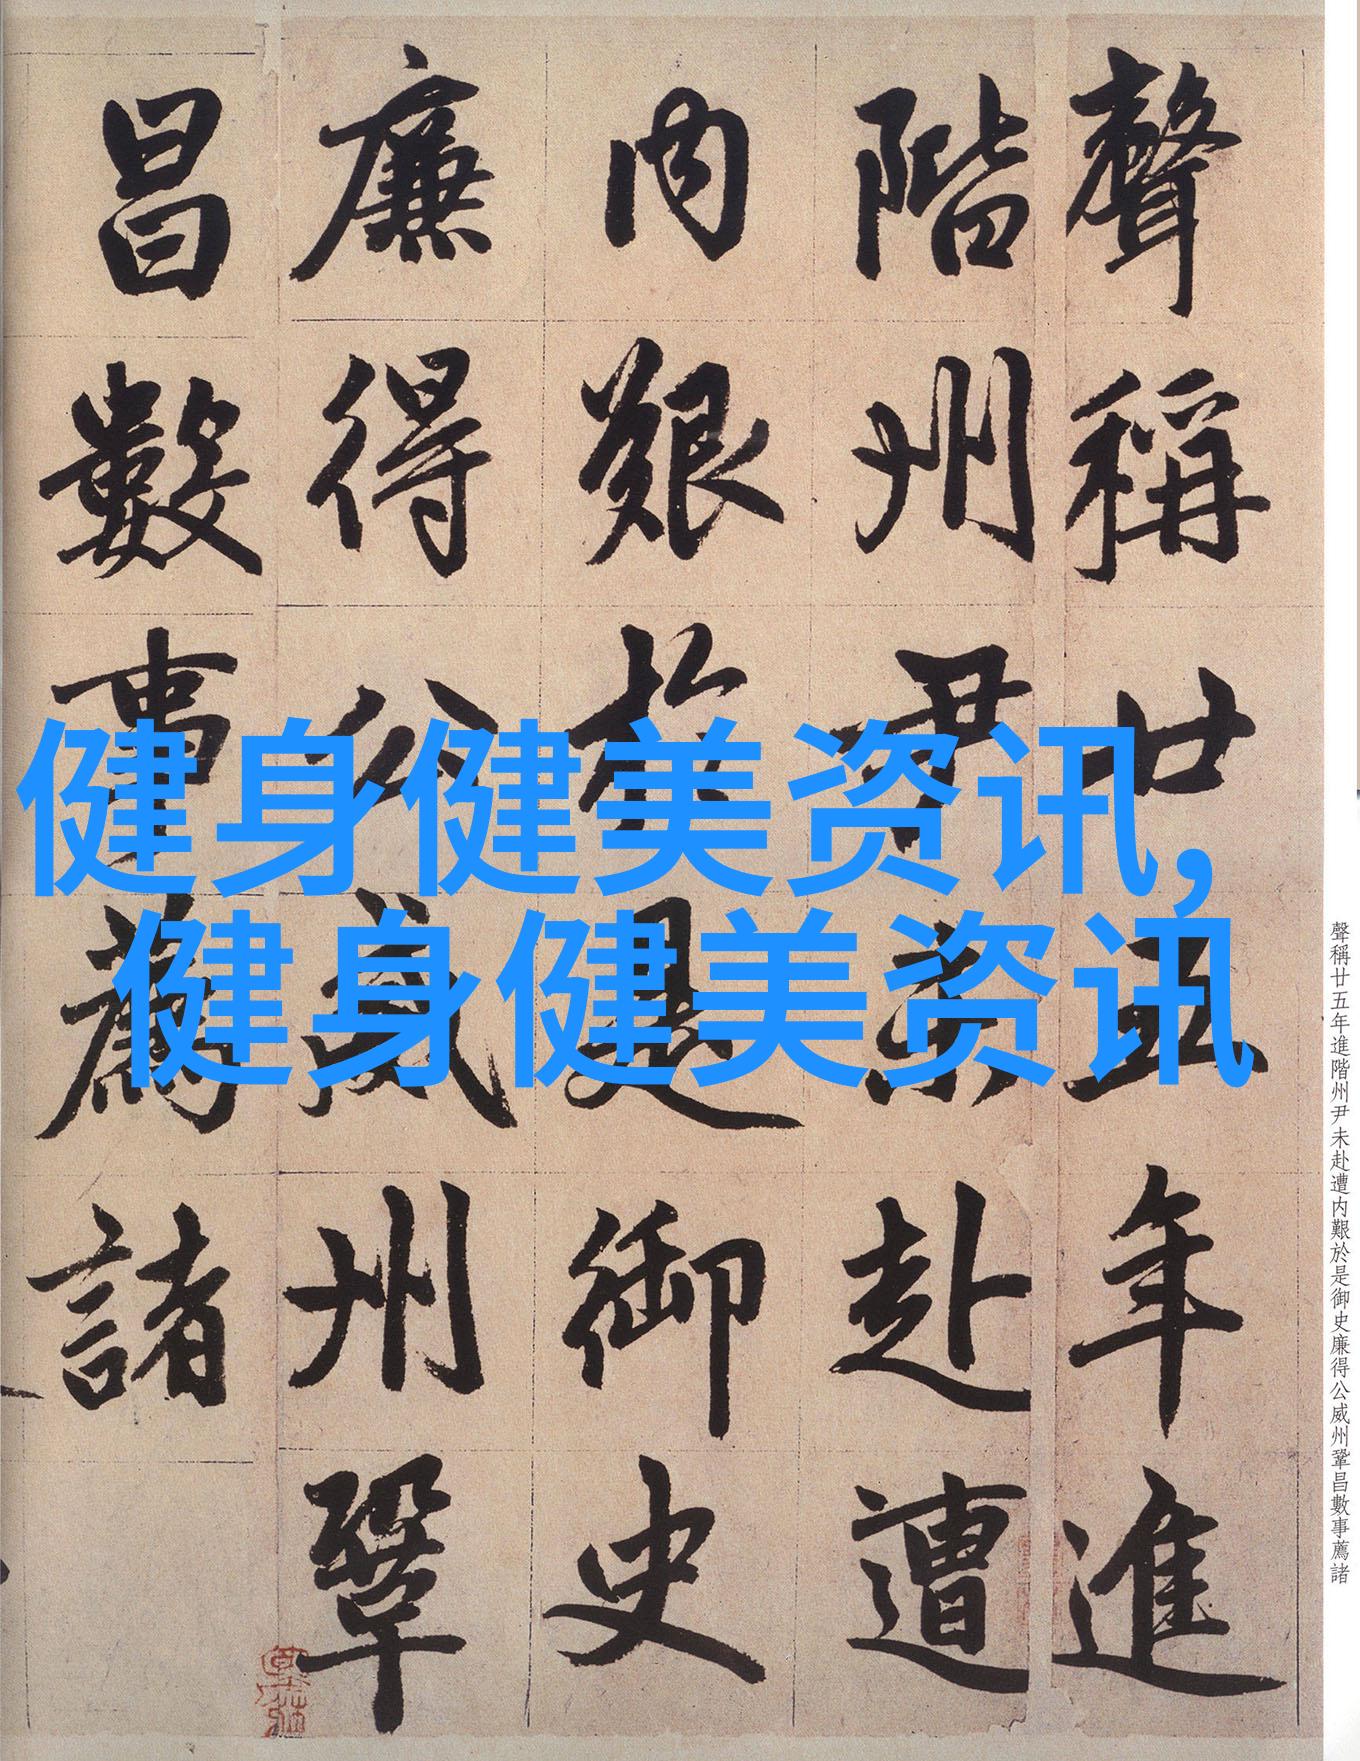 聲稱廿五年進
階州尹未赴遭
内艱於是御史
廉得公威州鞏
昌數事薦諸
健身健美资讯,
健身健美资讯
聲稱廿五年進階州尹未赴遭内艱於是御史廉得公威州鞏昌數事薦諸